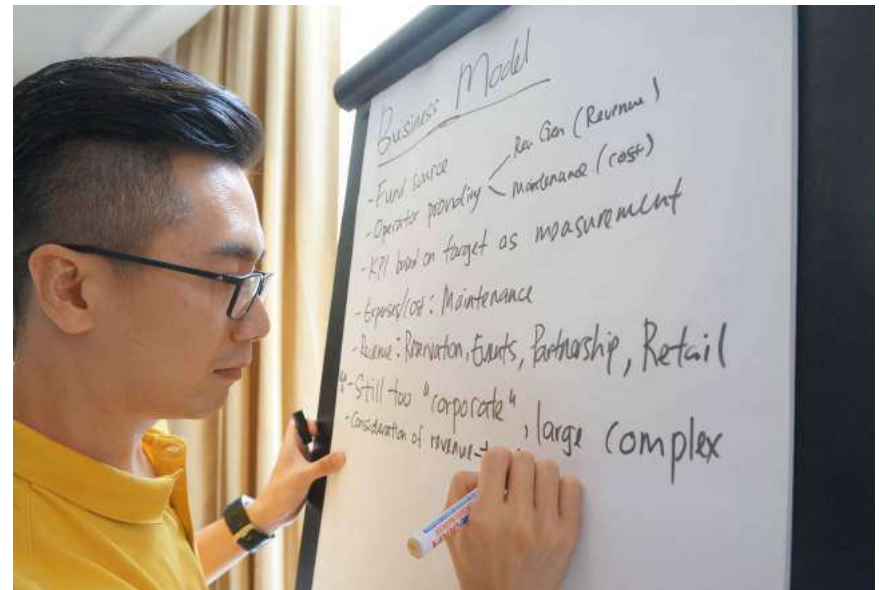 Business Model
- Fund source
- Operator providing < Rev Gen (Revenue)
Maintenance (cost)
- KPI based on target as measurement
- Expenses/cost : Maintenance
- Revenue : Reservation, Events, Partnership, Retail
- Still too "corporate", large complex
- Consideration of revenue-